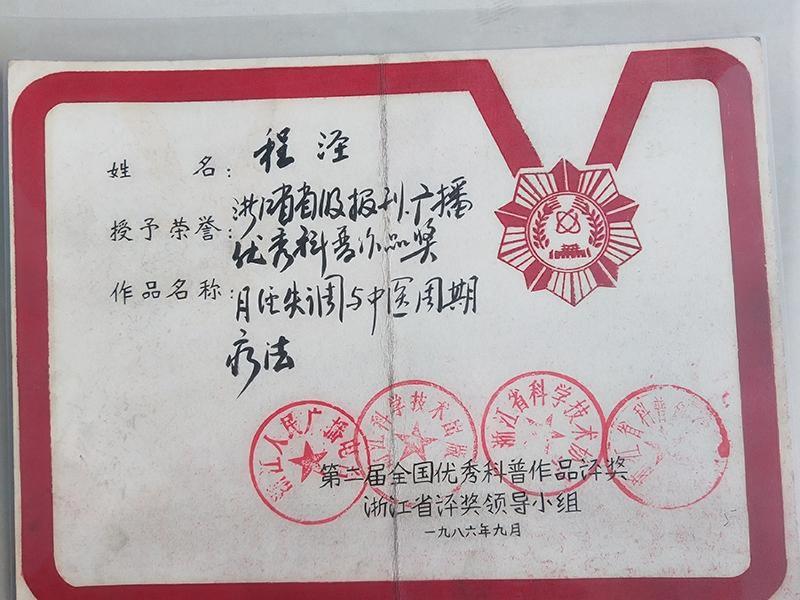 姓名：程泾
授予荣誉：浙江省省级报刊、广播
优秀科普作品奖
作品名称：月经失调与中医周期
疗法
浙江人民广播电
江科学技术出版
浙江省科学技术协
江省科普
第二届全国优秀科普作品评奖
浙江省评奖领导小组
一九八六年九月